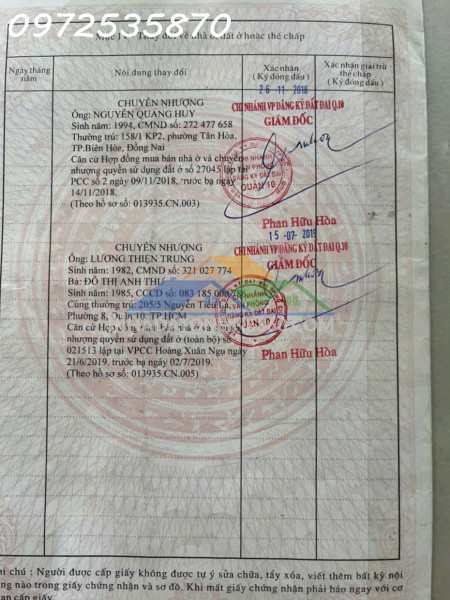 0972535870
Mục IV - Thay đổi về nhà ở, đất ở hoặc thế chấp
Ngày tháng năm
Nội dung thay đổi
Xác nhận
(Ký đóng dấu)
Xác nhận giải trừ
thế chấp
(Ký đóng dấu)
26-11-2018
CHUYỂN NHƯỢNG
Ông: NGUYỄN QUANG HUY
Sinh năm: 1994, CMND số: 272 477 758
Thường trú: 158/1 KP2, phường Tân Hòa,
TP.Biên Hòa, Đồng Nai
Căn cứ Hợp đồng mua bán nhà ở và chuyển
nhượng quyền sử dụng đất ở số 27045 lập tại
PCC số 2 ngày 09/11/2018, trước bạ ngày
14/11/2018.
(Theo hồ sơ số: 013935.CN.003)
CHI NHÁNH VP ĐĂNG KÝ ĐẤT ĐAI Q.10
GIÁM ĐỐC
CHI NHÁNH
VĂN PHÒNG
ĐĂNG KÝ ĐẤT ĐAI
QUẬN 10
Phan Hữu Hòa
15-07-2019
CHUYỂN NHƯỢNG
Ông: LƯƠNG THIỆN TRUNG
Sinh năm: 1982, CMND số: 321 027 774
Bà: ĐỖ THỊ ANH THƯ
Sinh năm: 1985, CCCD số: 083 185 00
Cùng thường trú: 205/5 Nguyễn Tiểu La,
Phường 8, Quận 10, TP.HCM
Căn cứ Hợp đồng mua bán nhà ở và chuyển
nhượng quyền sử dụng đất ở (toàn bộ) số
021513 lập tại VPCC Hoàng Xuân Ngụ ngày
21/6/2019, trước bạ ngày 02/7/2019.
(Theo hồ sơ số: 013935.CN.005)
CHI NHÁNH VP ĐĂNG KÝ ĐẤT ĐAI Q.10
GIÁM ĐỐC
CHI NHÁNH
VĂN PHÒNG
ĐĂNG KÝ ĐẤT ĐAI
QUẬN 10
Phan Hữu Hòa
hi chú : Người được cấp giấy không được tự ý sửa chữa, tẩy xóa, viết thêm bất kỳ nội
ng nào trong giấy chứng nhận và sơ đồ. Khi mất giấy chứng nhận phải báo ngay với cơ
an cấp giấy.